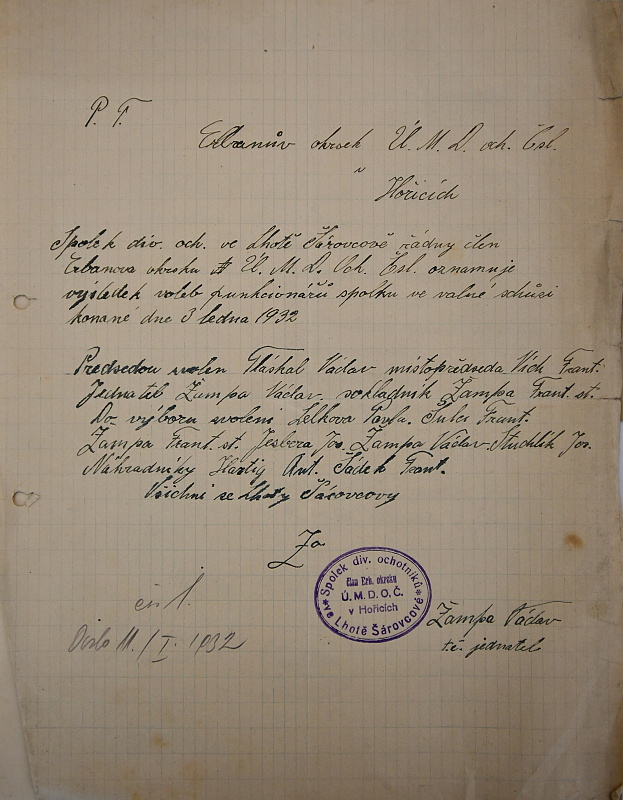 P. T.
Erbanův okrsek Ú. M. D. och. Čsl.
v
Hořicích
Spolek div. och. ve Lhotě Šárovcově řádny člen
Erbanova okrsku Ú. M. D. Och. Čsl. oznamuje
výsledek voleb funkcionářů spolku ve valné schůsi
konané dne 3 ledna 1932
Předsedou svolen Hláskal Václav místopředseda Vích Frant.
Jednatel Žampa Václav pokladník Žampa Frant. st.
Do výboru svoleni Lelkova Pavla. Šulc Frant.
Žampa Frant. st. Jesbera Jos. Žampa Václav. Studlík Jos.
Náhradníky Hartig Ant. Šádek Frant.
Všichni se Lhoty Šárovcovy
Za
Spolek div. ochotníků
člen Erb. okrsku
Ú. M. D. O. Č.
v Hořicích
ve Lhotě Šárovcově
čís 1.
Došlo 11./I. 1932
Žampa Václav
t.č. jednatel